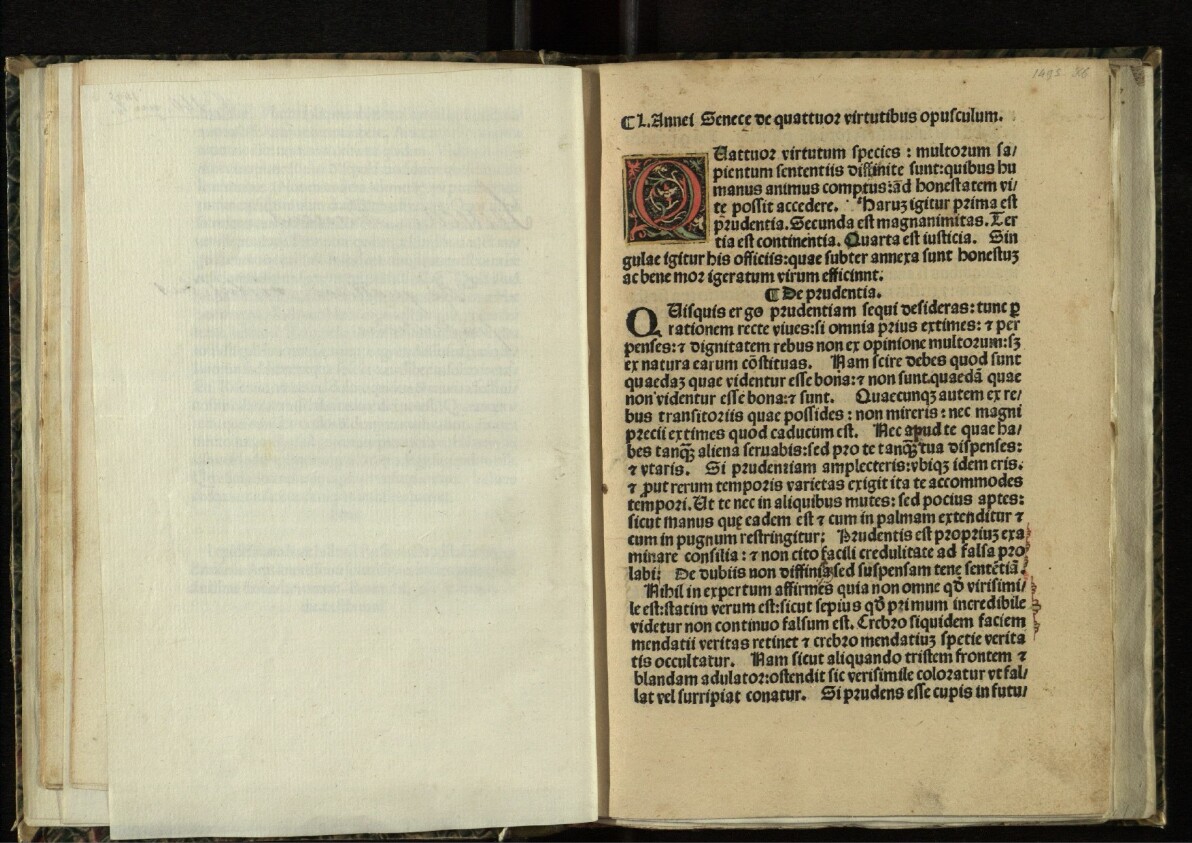 1495. X6
¶ L. Annei Senece de quattuor virtutibus opusculum.
QUattuor virtutum species : multorum sa/
pientum sententiis diffinite sunt:quibus hu
manus animus comptus:ad honestatem vi/
te possit accedere. Haruꝫ igitur prima est
prudentia. Secunda est magnanimitas. Ter
tia est continentia. Quarta est iusticia. Sin
gulae igitur his officiis:quae subter annexa sunt honestuꝫ
ac bene mor igeratum virum efficinnt.
¶ De prudentia.
QUisquis ergo prudentiam sequi desideras: tunc ꝑ
rationem recte viues:si omnia prius extimes: ⁊ per
penses:⁊ dignitatem rebus non ex opinione multorum:sꝫ
ex natura earum cōstituas. Nam scire debes quod sunt
quaedaꝫ quae videntur esse bona:⁊ non sunt.quaedā quae
non videntur esse bona:⁊ sunt. Quaecunqꝫ autem ex re/
bus transitoriis quae possides : non mireris : nec magni
precii extimes quod caducum est. Nec apud te quae ha/
bes tanqꝫ̄ aliena seruabis:sed pro te tanqꝫ̄ tua dispenses:
⁊ vtaris. Si prudentiam amplecteris:vbiqꝫ idem eris.
⁊ ꝓut rerum temporis varietas exigit ita te accommodes
tempori. Ut te nec in aliquibus mutes: sed pocius aptes:
sicut manus quę eadem est ⁊ cum in palmam extenditur ⁊
cum in pugnum restringitur; Prudentis est propriuꝫ exa
minare consilia : ⁊ non cito facili credulitate ad falsa pro
labi: De dubiis non diffinis sed suspensam tene sentētiā.
Nihil in expertum affirmes quia non omne qđ virisimi/
le est:statim verum est:sicut sepius qđ primum incredibile
videtur non continuo falsum est. Crebro siquidem faciem
mendatii veritas retinet ⁊ crebro mendatiuꝫ spetie verita
tis occultatur. Nam sicut aliquando tristem frontem ⁊
blandam adulator:ostendit sic verisimile coloratur vt fal/
lat vel surripiat conatur. Si prudens esse cupis in futu/